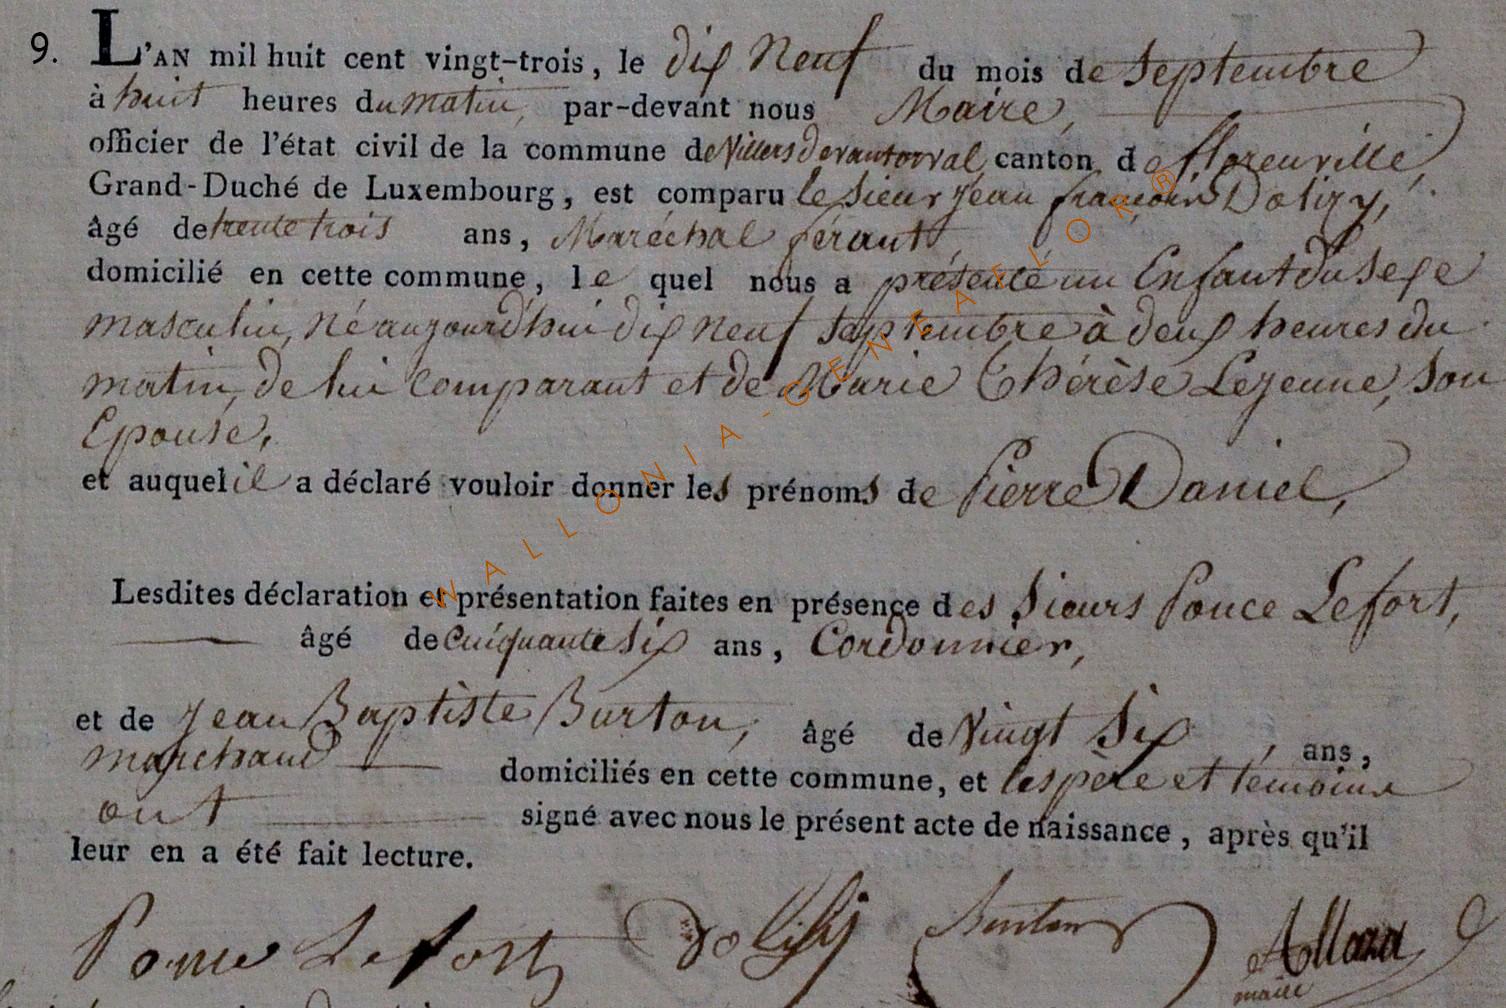 9. L'AN mil huit cent vingt-trois, le dix Neuf du mois de Septembre
à huit heures du matin, par-devant nous Maire,
officier de l'état civil de la commune de Villers devant orval, canton de florenville,
Grand-Duché de Luxembourg, est comparu le Sieur Jean françois Dolizy,
âgé de trente trois ans, Maréchal férant
domicilié en cette commune, le quel nous a présenté un Enfant du Sexe
masculin, né aujourd'hui dix neuf Septembre à deux heures du
matin, de lui Comparant et de Marie Thérèse Lejeune, Son
Epouse,
et auquel il a déclaré vouloir donner les prénoms de Pierre Daniel,
Lesdites déclaration et présentation faites en présence des Sieurs Ponce Lefort,
âgé de Cinquante Six ans, Cordonnier,
et de Jean Baptiste Burton, âgé de Vingt Six, ans,
marchand domiciliés en cette commune, et les père et témoins
ont signé avec nous le présent acte de naissance, après qu'il
leur en a été fait lecture.
Ponce Lefort Dolizy Burton Allard
maire
WALLONIA-GENEAFLOR®